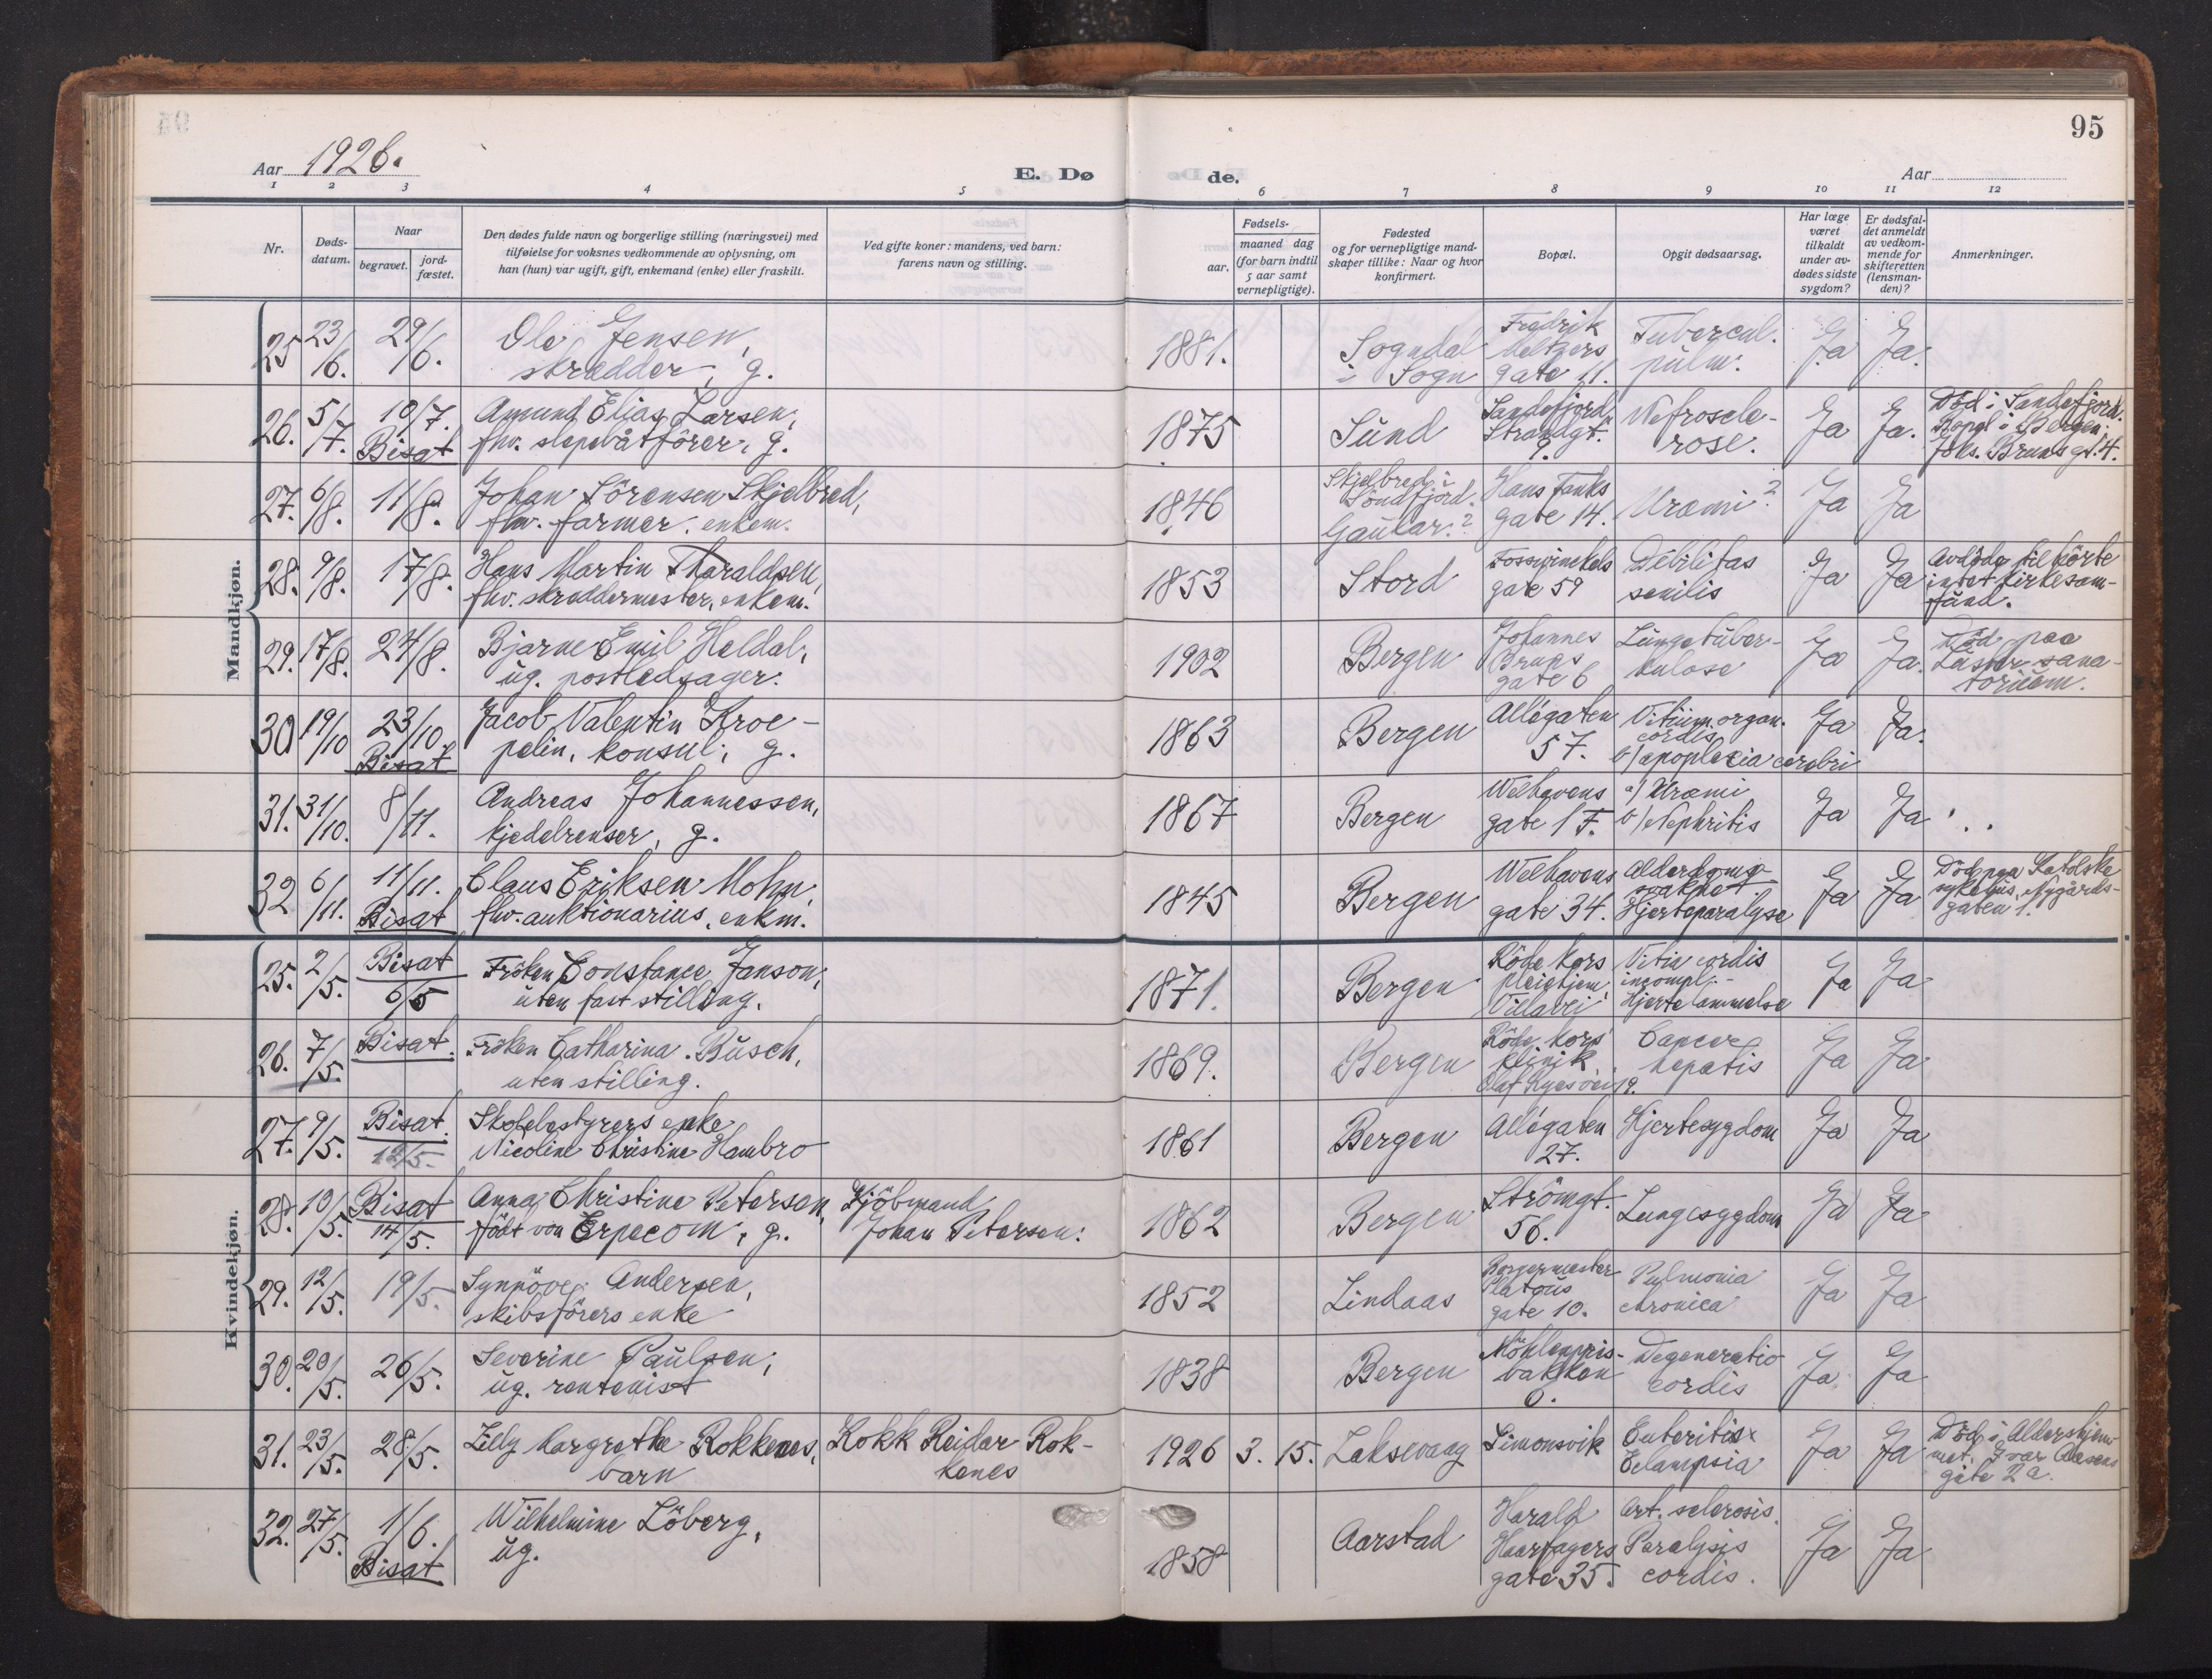 94
95
Aar 1926.
E. Dø
de.
Aar
1 2 3 4 5 6 7 8 9 10 11 12
Nr.
Døds-
datum.
Naar
begravet.
jord-
fæstet.
Den dødes fulde navn og borgerlige stilling (næringsvei) med
tilføielse for voksnes vedkommende av oplysning, om
han (hun) var ugift, gift, enkemand (enke) eller fraskilt.
Ved gifte koner: mandens, ved barn:
farens navn og stilling.
Fødsels-
aar.
maaned dag
(for barn indtil
5 aar samt
vernepligtige).
Fødested
og for vernepligtige mand-
skaper tillike: Naar og hvor
konfirmert.
Bopæl.
Opgit dødsaarsag.
Har læge
været
tilkaldt
under av-
dødes sidste
sygdom?
Er dødsfal-
det anmeldt
av vedkom-
mende for
skifteretten
(lensman-
den)?
Anmerkninger.
Mandkjøn.
25 23/6. 29/6. Ole Jensen, skrædder, g. 1881. Sogndal i Sogn Fredrik Meltzers gate 11. Tubercul. pulm. Ja Ja.
26. 5/7. 10/7. Bisat Amund Elias Larsen, fhv. slepebåtförer, g. 1875 Sund Sandefjord, Strandgt. 9. Nefrosclerose. Ja Ja. Död i Sandefjord. Bopæl i Bergen: Johs. Bruns gt. 4.
27. 6/8. 11/8. Johan Sörensen Skjelbred, fhv. farmer, enkem. 1846 Skjelbred i Söndfjord. Gaular? Hans Tanks gate 14. Uræmi? Ja Ja
28. 9/8. 17/8. Hans Martin Tharaldsen, fhv. skræddermester, enkem. 1853 Stord Fosswinckels gate 59 Debilitas senilis Ja Ja Avdöde tilhörte intet kirkesamfund.
29. 17/8. 24/8. Bjarne Emil Heldal, ug. postledsager. 1902 Bergen Johannes Bruns gate 6 Lungetuberkulose Ja Ja. Död paa Luster sanatorium.
30 19/10 23/10 Bisat Jacob Valentin Kroepelin, konsul, g. 1863 Bergen Allégaten 57. Vitium organ. cordis b/ apoplexia cerebri Ja Ja.
31. 31/10. 8/11. Andreas Johannessen, kjedelrenser, g. 1867 Bergen Welhavens gate 1 F. a/ Uræmi b/ Nephritis Ja Ja
32 6/11. 11/11. Bisat Claus Eriksen Mohn, fhv. auktionarius, enkm. 1845 Bergen Welhavens gate 34. Alderdomssvakhet. Hjerteparalyse Ja Ja Död paa Katolske sykehus, Nygårdsgaten 1.
Kvindekjøn.
25. 2/5. Bisat 6/5 Fröken Constance Janson, uten fast stilling. 1871. Bergen Röde Kors pleiehjem, Villavei Vitia cordis incompl. - Hjertelammelse Ja Ja
26. 7/5. Bisat. Fröken Catharina Busch, uten stilling. 1869. Bergen Röde Kors' klinik Olaf Ryesvei 19. Cancer hepatis Ja Ja
27. 9/5. Bisat. 12/5. Skolebestyrers enke Nicoline Christine Hambro 1861 Bergen Allégaten 27. Hjertesygdom Ja Ja
28. 10/5. Bisat 14/5. Anna Christine Petersen, födt von Erpecom, g. Kjöbmand Johan Petersen. 1862 Bergen Strömgt. 56. Lungesygdom Ja Ja
29. 12/5. 19/5. Synnöve Andersen, skibsförers enke 1852 Lindaas Borgermester Platous gate 10. Pulmonia chronica Ja Ja
30. 20/5. 26/5. Severine Paulsen, ug. rentenist 1838 Bergen Möhlenprisbakken 6. Degeneratio cordis Ja Ja
31. 23/5. 28/5. Lilly Margrethe Rokkenes, barn Kokk Reidar Rokkenes 1926 3. 15. Laksevaag Simonsvik Enteritis Eclampsia Ja Ja Död i Aldershjemmet, Ivar Aasens gate 2a.
32. 27/5. 1/6. Bisat Wilhelmine Löberg, ug. 1858 Aarstad Harald Haarfagers gate 35. Art. sclerosis. Paralysis cordis. Ja Ja